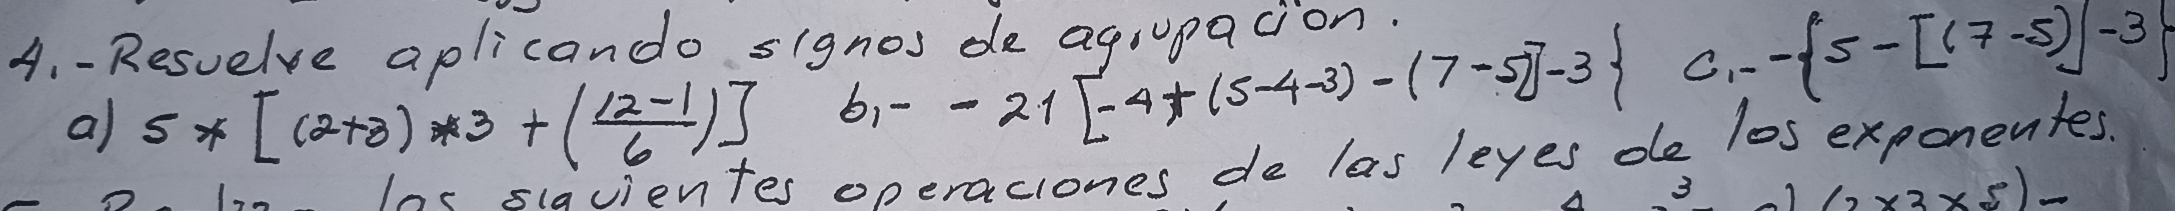 4.- Resuelve aplicando signos de agrupación.
a) 5 * [(2+3) * 3 + (12-1/6)] b.- - 21 [-4+(5-4-3)-(7-5)]-3} c.- -{5-[(7-5)]-3}
los siguientes operaciones de las leyes de los exponentes.